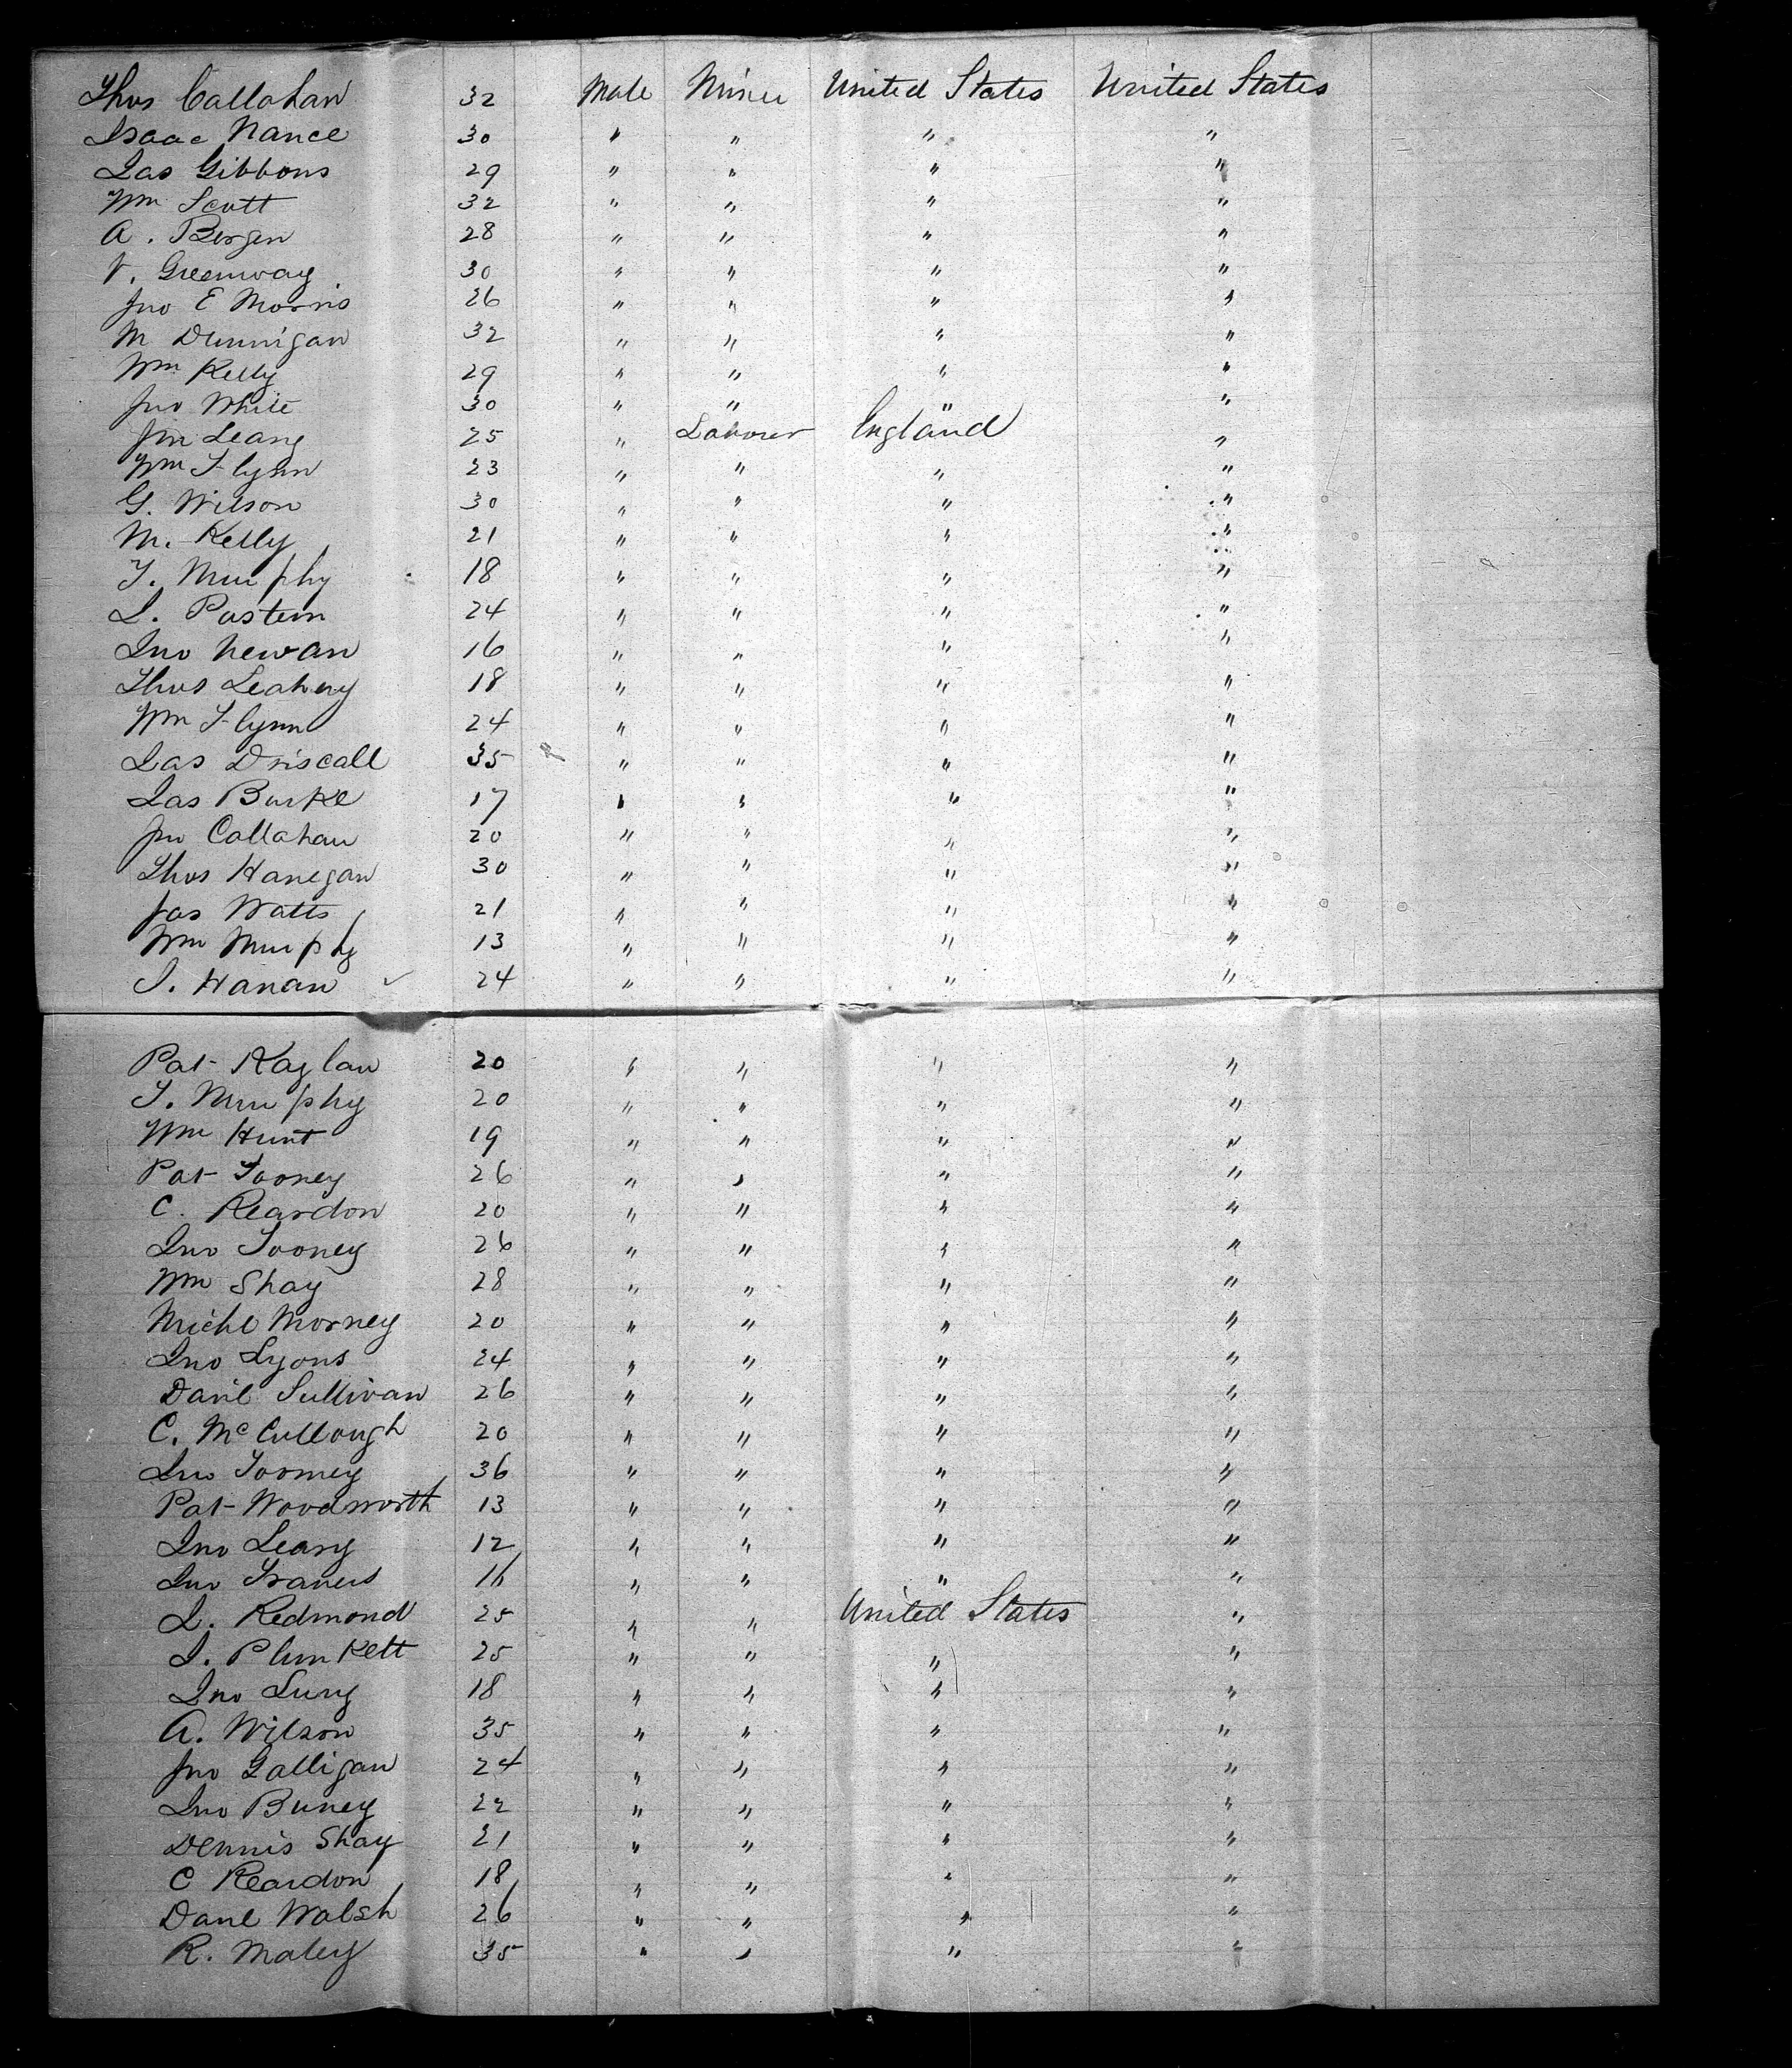 Thos Callahan 32 Male Miner United States United States
Isaac Nance 30 " " " "
Jas Gibbons 29 " " " "
Wm Scott 32 " " " "
A. Bergen 28 " " " "
V. Greenway 30 " " " "
Jno E Morris 26 " " " "
M Dunnigan 32 " " " "
Wm Kelly 29 " " " "
Jno White 30 " " " "
Jno Leany 25 " Laborer England "
Wm Flynn 23 " " " "
G. Wilson 30 " " " "
M. Kelly 21 " " " "
T. Murphy 18 " " " "
J. Postern 24 " " " "
Jno Newan 16 " " " "
Thos Leahey 18 " " " "
Wm Flynn 24 " " " "
Jas Driscall 35 " " " "
Jas Burke 17 " " " "
Jno Callahan 20 " " " "
Thos Hanegan 30 " " " "
Jas Watts 21 " " " "
Wm Murphy 13 " " " "
J. Hanan 24 " " " "
Pat Raglan 20 " " " "
T. Murphy 20 " " " "
Wm Hunt 19 " " " "
Pat Tooney 26 " " " "
C. Reardon 20 " " " "
Jno Tooney 26 " " " "
Wm Shay 28 " " " "
Michl Morney 20 " " " "
Jno Lyons 24 " " " "
Danl Sullivan 26 " " " "
C. McCullough 20 " " " "
Jno Toomey 36 " " " "
Pat Woodworth 13 " " " "
Jno Leary 12 " " " "
Jno Travers 16 " " " "
J. Redmond 25 " " United States "
J. Plunkett 25 " " " "
Jno Lung 18 " " " "
A. Wilson 35 " " " "
Jno Galligan 24 " " " "
Jno Buney 22 " " " "
Dennis Shay 21 " " " "
C Reardon 18 " " " "
Danl Walsh 26 " " " "
R. Maley 35 " " " "